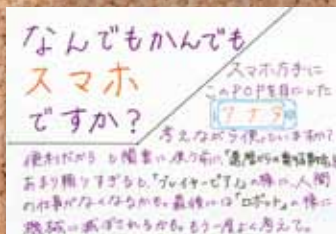 なんでもかんでも
スマホ
ですか?
スマホ片手に
このPOPを目にした
アナタ
考えながら使っていますか?
便利だから と 随意に 使う前に
あまり頼りすぎると、「プレイヤーピアノ」の様に、人間
の仕事がなくなるかも。最後には「ロボット」の様に
機械に滅ぼされるかも。もう一度よく考えて。